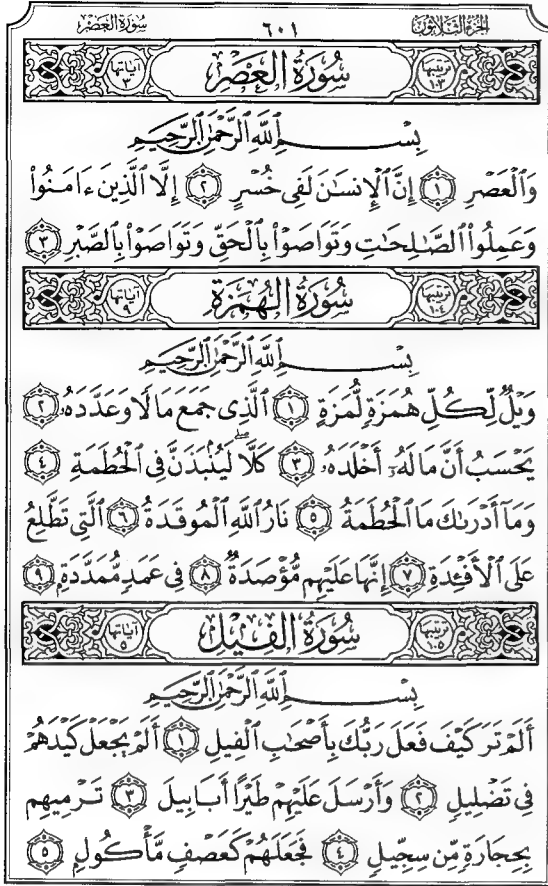 الجزء الثلاثون ٦٠١ سورة العصر
ترتيبها ١٠٣ سُورَةُ العَصْرِ آياتها ٣
بِسْمِ اللَّهِ الرَّحْمَٰنِ الرَّحِيمِ
وَالْعَصْرِ ١ إِنَّ الْإِنسَانَ لَفِى خُسْرٍ ٢ إِلَّا الَّذِينَ ءَامَنُوا۟
وَعَمِلُوا۟ الصَّـٰلِحَـٰتِ وَتَوَاصَوْا۟ بِالْحَقِّ وَتَوَاصَوْا۟ بِالصَّبْرِ ٣
ترتيبها ١٠٤ سُورَةُ الهُمَزَةِ آياتها ٩
بِسْمِ اللَّهِ الرَّحْمَٰنِ الرَّحِيمِ
وَيْلٌ لِّكُلِّ هُمَزَةٍ لُّمَزَةٍ ١ الَّذِى جَمَعَ مَالًا وَعَدَّدَهُۥ ٢
يَحْسَبُ أَنَّ مَالَهُۥٓ أَخْلَدَهُۥ ٣ كَلَّا ۖ لَيُنۢبَذَنَّ فِى الْحُطَمَةِ ٤
وَمَآ أَدْرَىٰكَ مَا الْحُطَمَةُ ٥ نَارُ اللَّهِ الْمُوقَدَةُ ٦ الَّتِى تَطَّلِعُ
عَلَى الْأَفْـِٔدَةِ ٧ إِنَّهَا عَلَيْهِم مُّؤْصَدَةٌ ٨ فِى عَمَدٍ مُّمَدَّدَةٍۭ ٩
ترتيبها ١٠٥ سُورَةُ الفِيلِ آياتها ٥
بِسْمِ اللَّهِ الرَّحْمَٰنِ الرَّحِيمِ
أَلَمْ تَرَ كَيْفَ فَعَلَ رَبُّكَ بِأَصْحَـٰبِ الْفِيلِ ١ أَلَمْ يَجْعَلْ كَيْدَهُمْ
فِى تَضْلِيلٍ ٢ وَأَرْسَلَ عَلَيْهِمْ طَيْرًا أَبَابِيلَ ٣ تَرْمِيهِم
بِحِجَارَةٍ مِّن سِجِّيلٍ ٤ فَجَعَلَهُمْ كَعَصْفٍ مَّأْكُولٍۭ ٥